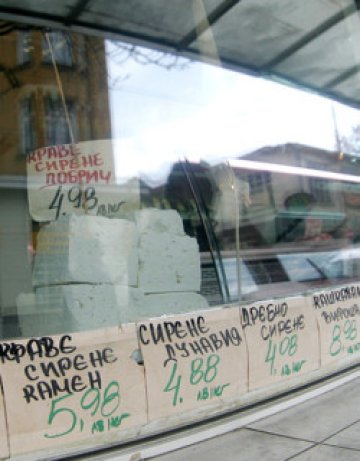 КРАВЕ
СИРЕНЕ
ДОБРИЧ
4.98 лв/кг
КРАВЕ
СИРЕНЕ
КАМЕН
5,98
лв/кг
СИРЕНЕ
ДУНАВИЯ
4.88
лв/кг
ДРЕБНО
СИРЕНЕ
4.08
лв/кг
ВИТОША
8.98